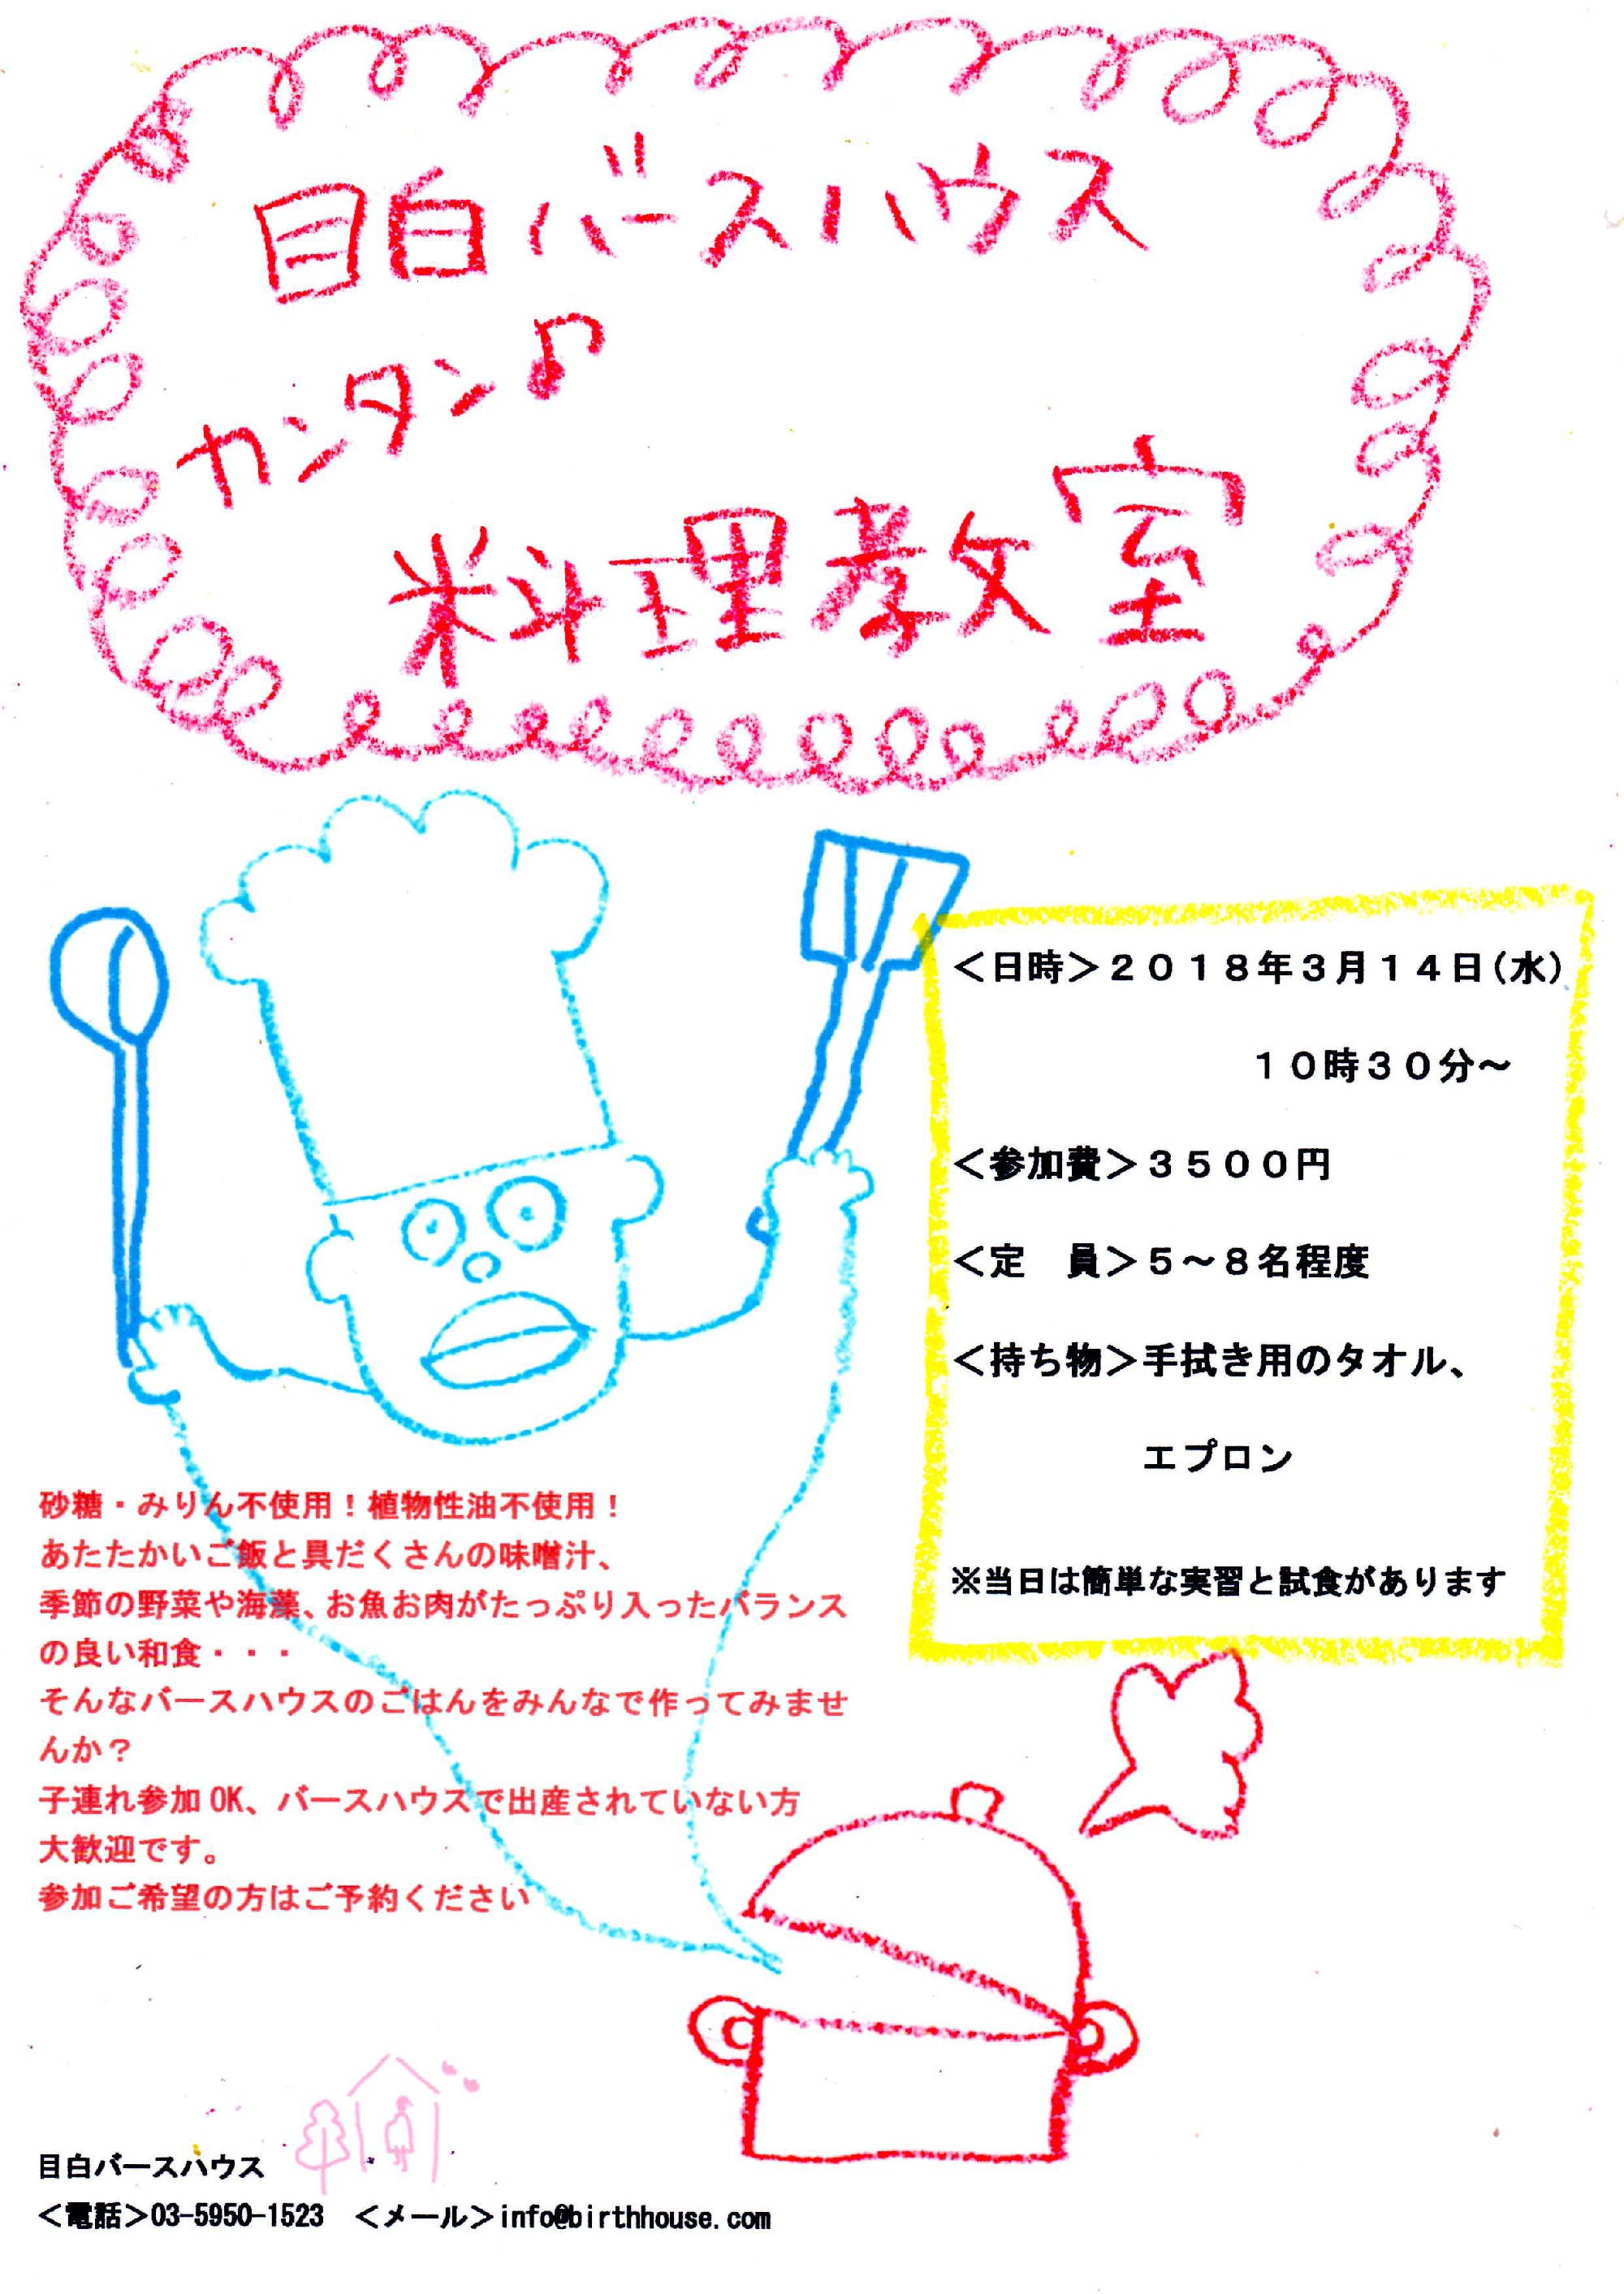 目白バースハウス
カンタン♪
料理教室
＜日時＞２０１８年３月１４日(水)
１０時３０分～
＜参加費＞３５００円
＜定　員＞５～８名程度
＜持ち物＞手拭き用のタオル、
エプロン
※当日は簡単な実習と試食があります
砂糖・みりん不使用！植物性油不使用！
あたたかいご飯と具だくさんの味噌汁、
季節の野菜や海藻、お魚お肉がたっぷり入ったバランス
の良い和食・・・
そんなバースハウスのごはんをみんなで作ってみませ
んか？
子連れ参加OK、バースハウスで出産されていない方
大歓迎です。
参加ご希望の方はご予約ください
目白バースハウス
＜電話＞03-5950-1523　＜メール＞info@birthhouse.com